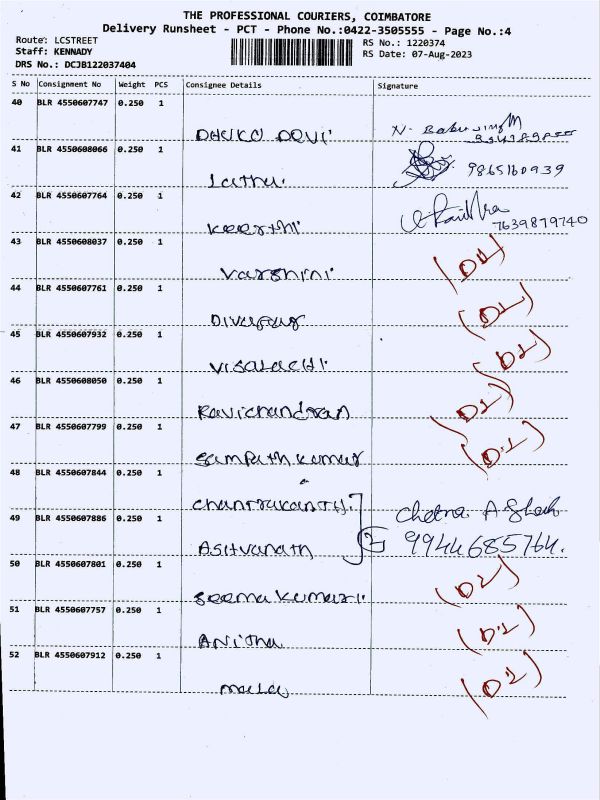 THE PROFESSIONAL COURIERS, COIMBATORE
Delivery Runsheet - PCT - Phone No.:0422-3505555 - Page No.:4
Route: LCSTREET
RS No.: 1220374
Staff: KENNADY
RS Date: 07-Aug-2023
DRS No.: DCJB122037404
S No Consignment No Weight PCS Consignee Details Signature
40 BLR 4550607747 0.250 1
N. Babu singh
41 BLR 4550608066 0.250 1
Latha.
9865160939
42 BLR 4550607764 0.250 1
Keerthi
7639879740
43 BLR 4550608037 0.250 1
Varshini
(DL)
44 BLR 4550607761 0.250 1
(DL)
45 BLR 4550607932 0.250 1
Visalachi
(DL)
46 BLR 4550608050 0.250 1
Ravichandran
(DL)
47 BLR 4550607799 0.250 1
Sampath Kumar
(DL)
48 BLR 4550607844 0.250 1
Chantrakanth
Chetna A
49 BLR 4550607886 0.250 1
Asitvanath
2
9944685764.
50 BLR 4550607801 0.250 1
Seema Kumari
(DL)
51 BLR 4550607757 0.250 1
Anitha
(DL)
52 BLR 4550607912 0.250 1
Mala
(DL)